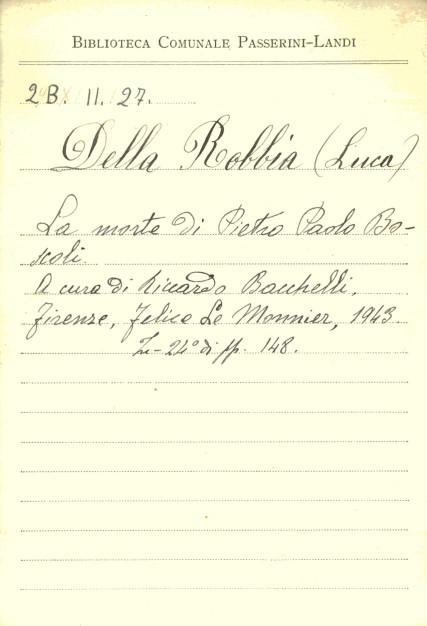 BIBLIOTECA COMUNALE PASSERINI-LANDI
2B. II. 27.
Della Robbia (Luca)
La morte di Pietro Paolo Bo-
scoli.
A cura di Riccardo Bacchelli.
Firenze, Felice Le Monnier, 1943.
24° di pp. 148.